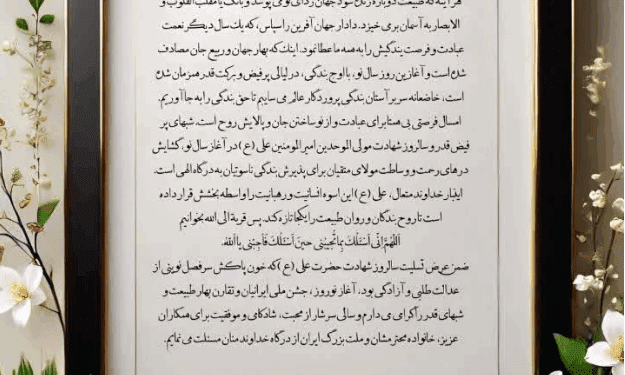 هر آینه که طبیعت دوباره زنده شود جهان ردای نو می پوشد و بانگ یا مقلب القلوب و
الابصار به آسمان برمی خیزد. دادار جهان آفرین را سپاس، که یك سال دیگر نعمت
عبادت و فرصت بندگیش را به همه ما عطا نمود. اینك که بهار جهان و ربیع جان مصادف
شده است و آغازین روز سال نو، با اوج بندگی، در لیالی پرفیض و برکت قدر همزمان شده
است، خاضعانه سر بر آستان بندگی پروردگار عالم می ساییم تا حق بندگی را به جا آوریم.
امسال فرصتی بی همتا برای عبادت و از نو ساختن جان و پالایش روح است. شبهای پر
فیض قدر و سالروز شهادت مولی الموحدین امیرالمومنین علی (ع) در آغاز سال نو، گشایش
درهای رحمت و وساطت مولای متقیان برای پذیرش بندگی ناسوتیان به درگاه الهی است.
اینبار خداوند متعال، علی (ع) این اسوه انسانیت و رهبانیت را واسطه بخشش قرار داده
است تا روح بندگان و روان طبیعت را یکجا تازه کند. پس قربة الی الله بخوانیم
اَللّهُمَّ اِنّی اَسْئَلُكَ بِما تُجیبُنی حینَ اَسْئَلُكَ فَاَجِبْنی یا اَلله.
ضمن عرض تسلیت سالروز شهادت حضرت علی (ع) که خون پاکش سرفصل نوینی از
عدالت طلبی و آزادگی بود. آغاز نوروز، جشن ملی ایرانیان و تقارن بهار طبیعت و
شبهای قدر را گرامی می دارم و سالی سرشار از محبت، شادکامی و موفقیت برای همکاران
عزیز، خانواده محترمشان و ملت بزرگ ایران از درگاه خداوند منان مسئلت می نمایم.